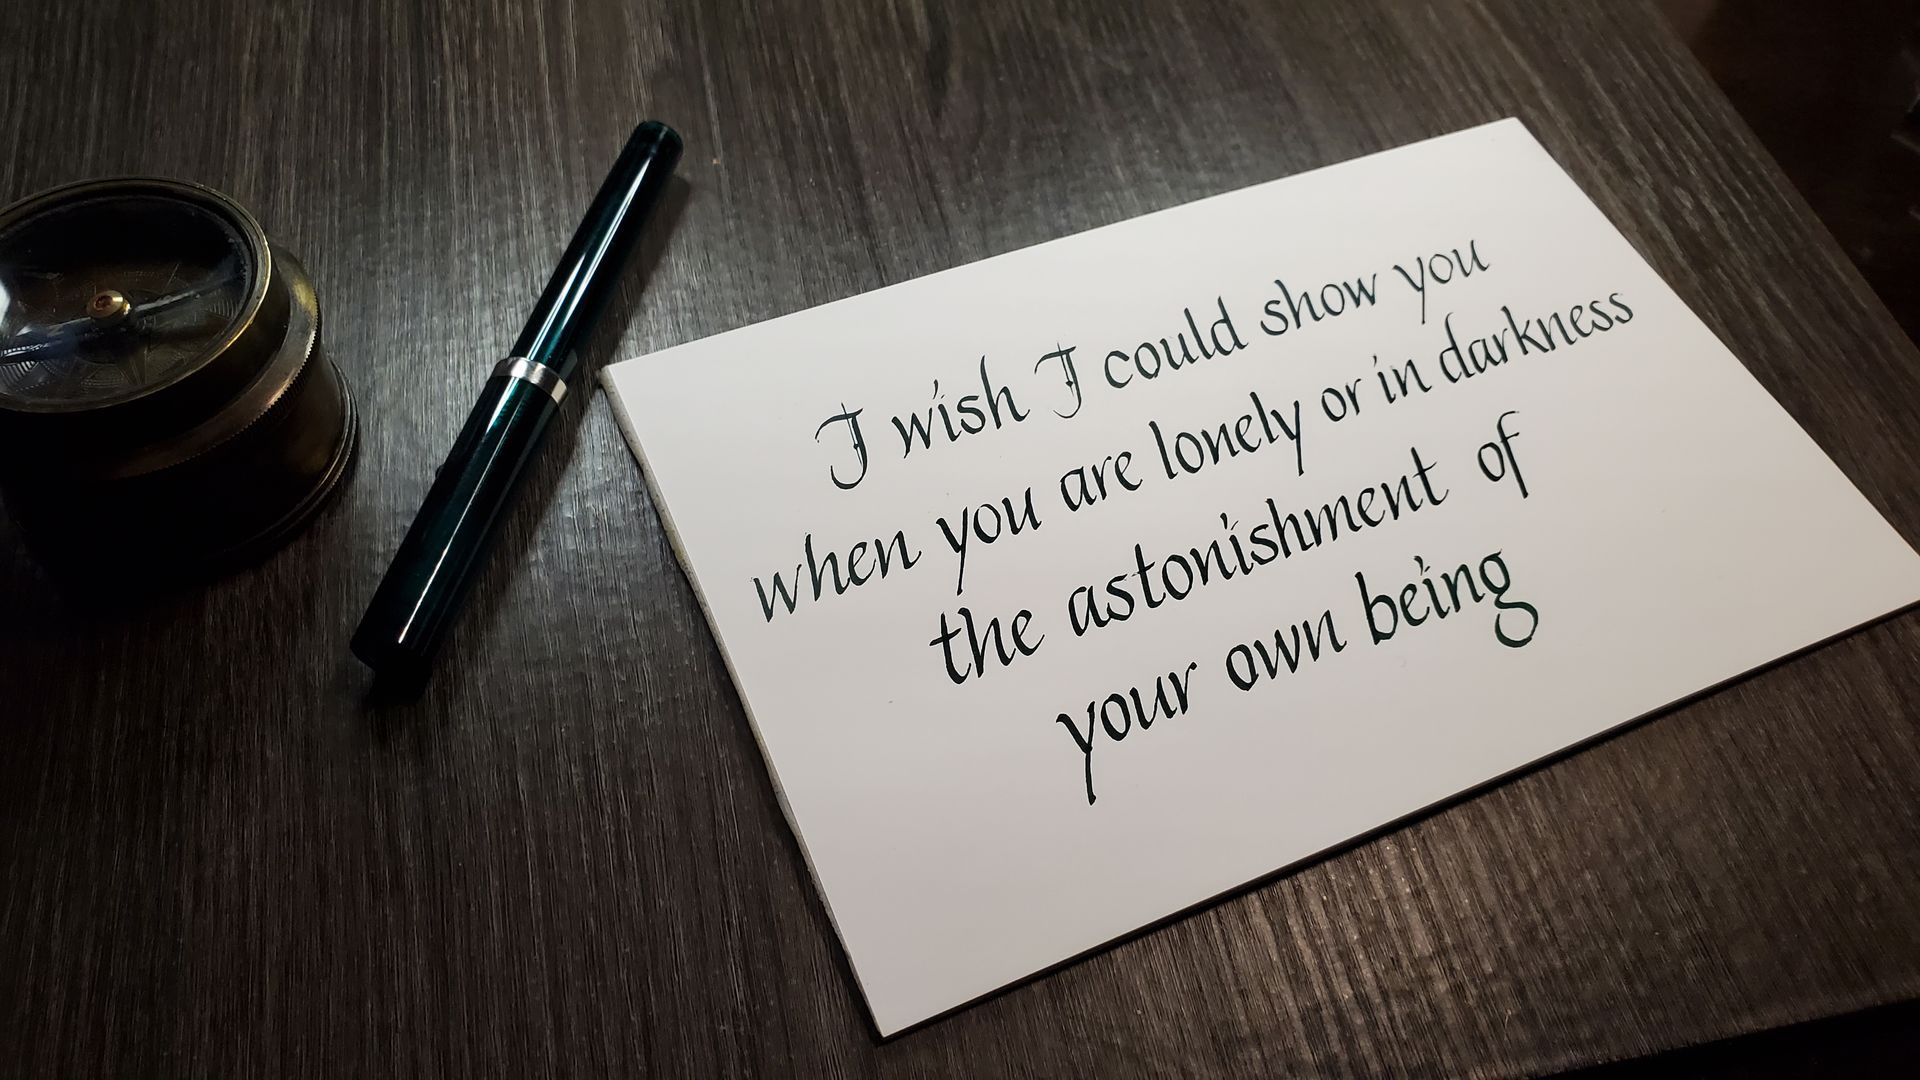 I wish I could show you
when you are lonely or in darkness
the astonishment of
your own being